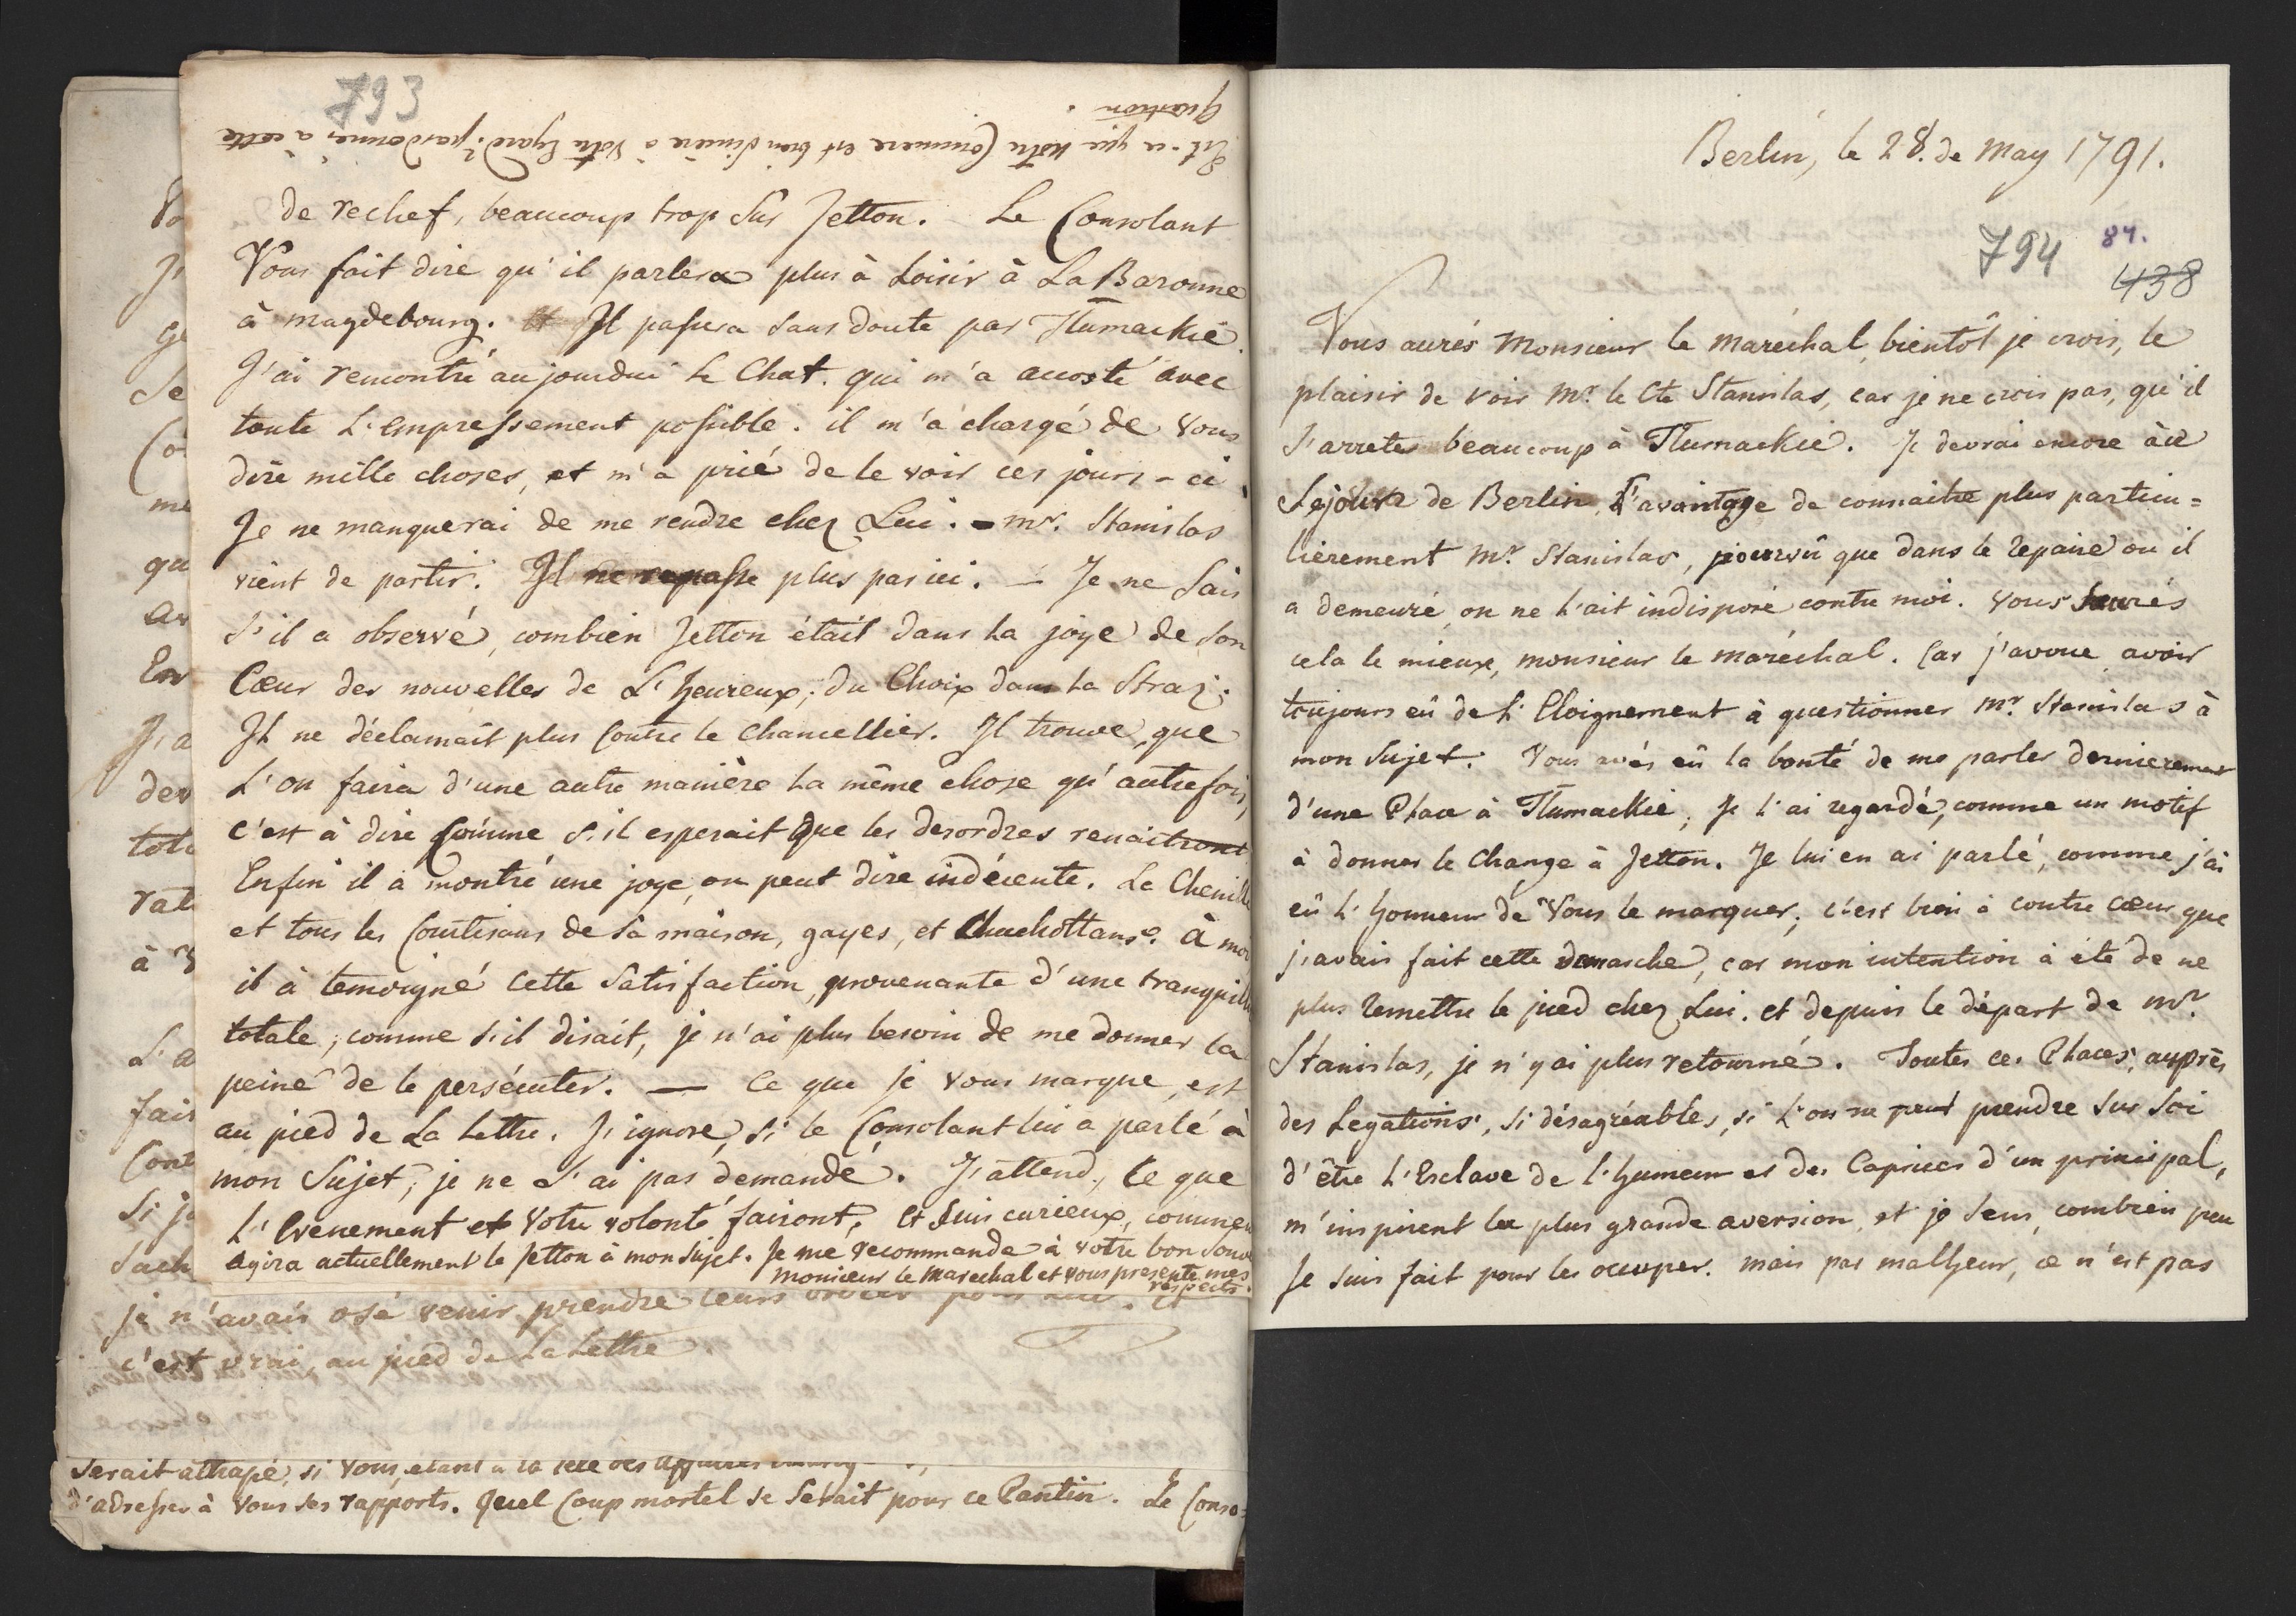 793
Est-ce que notre Commere est bien sincère à votre Egard? pardonnes à cette
question.
de rechef, beaucoup trop sur Jetton. Le Consolant
Vous fait dire qu'il parlera plus à Loisir à La Baronne
à magdebourg. Il passera sans doute par Tlumackie.
J'ai remontré aujourdui le Chat. qui m'a accosté avec
toute L'empressement possible. il m'a chargé de vous
dire mille choses, et m'a prié de le voir ces jours-ci.
Je ne manquerai de me rendre chez Lui. - mr. Stanislas
vient de partir. Il ne repasse plus par ici. - Je ne sais
s'il a observé, combien Jetton était dans la joye de son
Cœur des nouvelles de L'heureux, du Choix dans la Straz.
Il ne déclamait plus contre le Chancellier. Il trouve, que
L'on faira d'une autre manière la même chose qu'autrefois,
c'est à dire comme s'il esperait que les desordres renaitront
Enfin il a montré une joye, on peut dire indécente. La Chenille
et tous les Courtisans de sa maison, gayes, et Chuchottans. à moi
il a temoigné cette Satisfaction, provenante d'une tranquill
totale, comme s'il disait, je n'ai plus besoin de me donner la
peine de le persécuter. — Ce que je vous marque, est
au pied de La Lettre. J'ignore, si le Consolant lui a parlé à
mon Sujet, je ne L'ai pas demandé. J'attend, ce que
L'evenement et Votre volonté fairont, et suis curieux, commen
agira actuellement le Jetton à mon sujet. Je me recommande à votre bon souve
monsieur le Marechal et vous presente mes
respects.
je n'avais osé venir prendre leurs ordres
c'est vrai, au pied de La Lettre
Serait attrapé, si vous, étant à la tete des affaires
d'adresser à vous ses rapports. Quel Coup mortel se serait pour ce Pantin. Le Conso-
Berlin, le 28. de May 1791.
794
84.
438
Vous aurés Monsieur le Maréchal, bientôt je crois, le
plaisir de voir Mr. le Cte Stanislas, car je ne crois pas, qu'il
s'arretes beaucoup à Tlumackie. Je devrai encore àu
Sejour de Berlin, L'avantage de connaitre plus particu=
lièrement Mr. Stanislas, pourvû que dans le repaire où il
a demeuré, on ne l'ait indisposé contre moi. Vous saurés
cela le mieux, monsieur le maréchal. Car j'avoue avoir
toujours eû de L'Eloignement à questionner Mr. Stanislas à
mon Sujet. Vous avés eû la bonté de me parler dernierement
d'une Place à Tlumackie, Je l'ai regardé, comme un motif
à donner le Change à Jetton. Je lui en ai parlé, comme j'ai
eû L'honneur de Vous le marquer, c'est bien à contre cœur que
j'avais fait cette demarche, car mon intention à été de ne
plus remettre le pied chez Lui. et depuis le départ de Mr.
Stanislas, je n'y ai plus retourné. Toutes ces Places, auprès
des Legations, si désagréables, si l'on ne peut prendre sur soi
d'être L'Esclave de l'humeur et des Caprices d'un principal,
m'inspirent la plus grande aversion, et je sens, combien peu
Je suis fait pour les occuper. mais par malheur, ce n'est pas